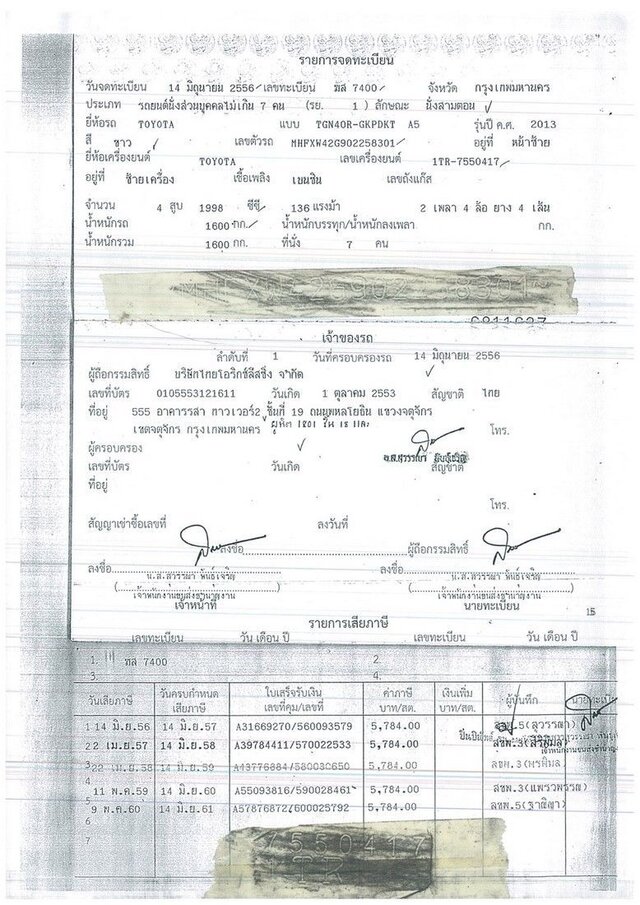 รายการจดทะเบียน
วันจดทะเบียน 14 มิถุนายน 2556 เลขทะเบียน ฑล 7400 จังหวัด กรุงเทพมหานคร
ประเภท รถยนต์นั่งส่วนบุคคลไม่เกิน 7 คน (รย. 1 ) ลักษณะ นั่งสามตอน
ยี่ห้อรถ TOYOTA แบบ TGN40R-GKPDKT A5 รุ่นปี ค.ศ. 2013
สี ขาว เลขตัวรถ MHFXW42G902258301 อยู่ที่ หน้าซ้าย
ยี่ห้อเครื่องยนต์ TOYOTA เลขเครื่องยนต์ 1TR-7550417
อยู่ที่ ซ้ายเครื่อง เชื้อเพลิง เบนซิน เลขถังแก๊ส
จำนวน 4 สูบ 1998 ซีซี 136 แรงม้า 2 เพลา 4 ล้อ ยาง 4 เส้น
น้ำหนักรถ 1600 กก. น้ำหนักบรรทุก/น้ำหนักลงเพลา กก.
น้ำหนักรวม 1600 กก. ที่นั่ง 7 คน
เจ้าของรถ
ลำดับที่ 1 วันที่ครอบครองรถ 14 มิถุนายน 2556
ผู้ถือกรรมสิทธิ์ บริษัทไทยโอริกซ์ลีสซิ่ง จำกัด
เลขที่บัตร 0105553121611 วันเกิด 1 ตุลาคม 2553 สัญชาติ ไทย
ที่อยู่ 555 อาคารรสา ทาวเวอร์2 ชั้นที่ 19 ถนนพหลโยธิน แขวงจตุจักร
เขตจตุจักร กรุงเทพมหานคร โทร.
ผู้ครอบครอง
เลขที่บัตร วันเกิด สัญชาติ
ที่อยู่
โทร.
สัญญาเช่าซื้อเลขที่ ลงวันที่
ลงชื่อ ผู้ถือกรรมสิทธิ์
ลงชื่อ ลงชื่อ
น.ส.สุวรรณา พันธ์เจริญ น.ส.สุวรรณา พันธ์เจริญ
เจ้าพนักงานขนส่งชำนาญงาน เจ้าพนักงานขนส่งชำนาญงาน
เจ้าหน้าที่ นายทะเบียน
15
รายการเสียภาษี
เลขทะเบียน วัน เดือน ปี เลขทะเบียน วัน เดือน ปี
1. ฑล 7400 2.
3. 4.
วันเสียภาษี วันครบกำหนดเสียภาษี ใบเสร็จรับเงิน เลขที่คุม/เลขที่ ค่าภาษี บาท/สต. เงินเพิ่ม บาท/สต. ผู้บันทึก
1 14 มิ.ย.56 14 มิ.ย.57 A31669270/560093579 5,784.00 ลขพ.5(สุวรรณา)
2 2 เม.ย.57 14 มิ.ย.58 A39784411/570022533 5,784.00 ลขพ.3(ศิริพิมล)
22 เม.ย.58 14 มิ.ย.59 5,784.00
11 พ.ค.59 14 มิ.ย.60 A55093816/590028461 5,784.00 ลขพ.3(แพรวพรรณ)
9 พ.ค.60 14 มิ.ย.61 A57876872/600025792 5,784.00 ลขพ.5(ฐาณิญา)
6
7
7550417